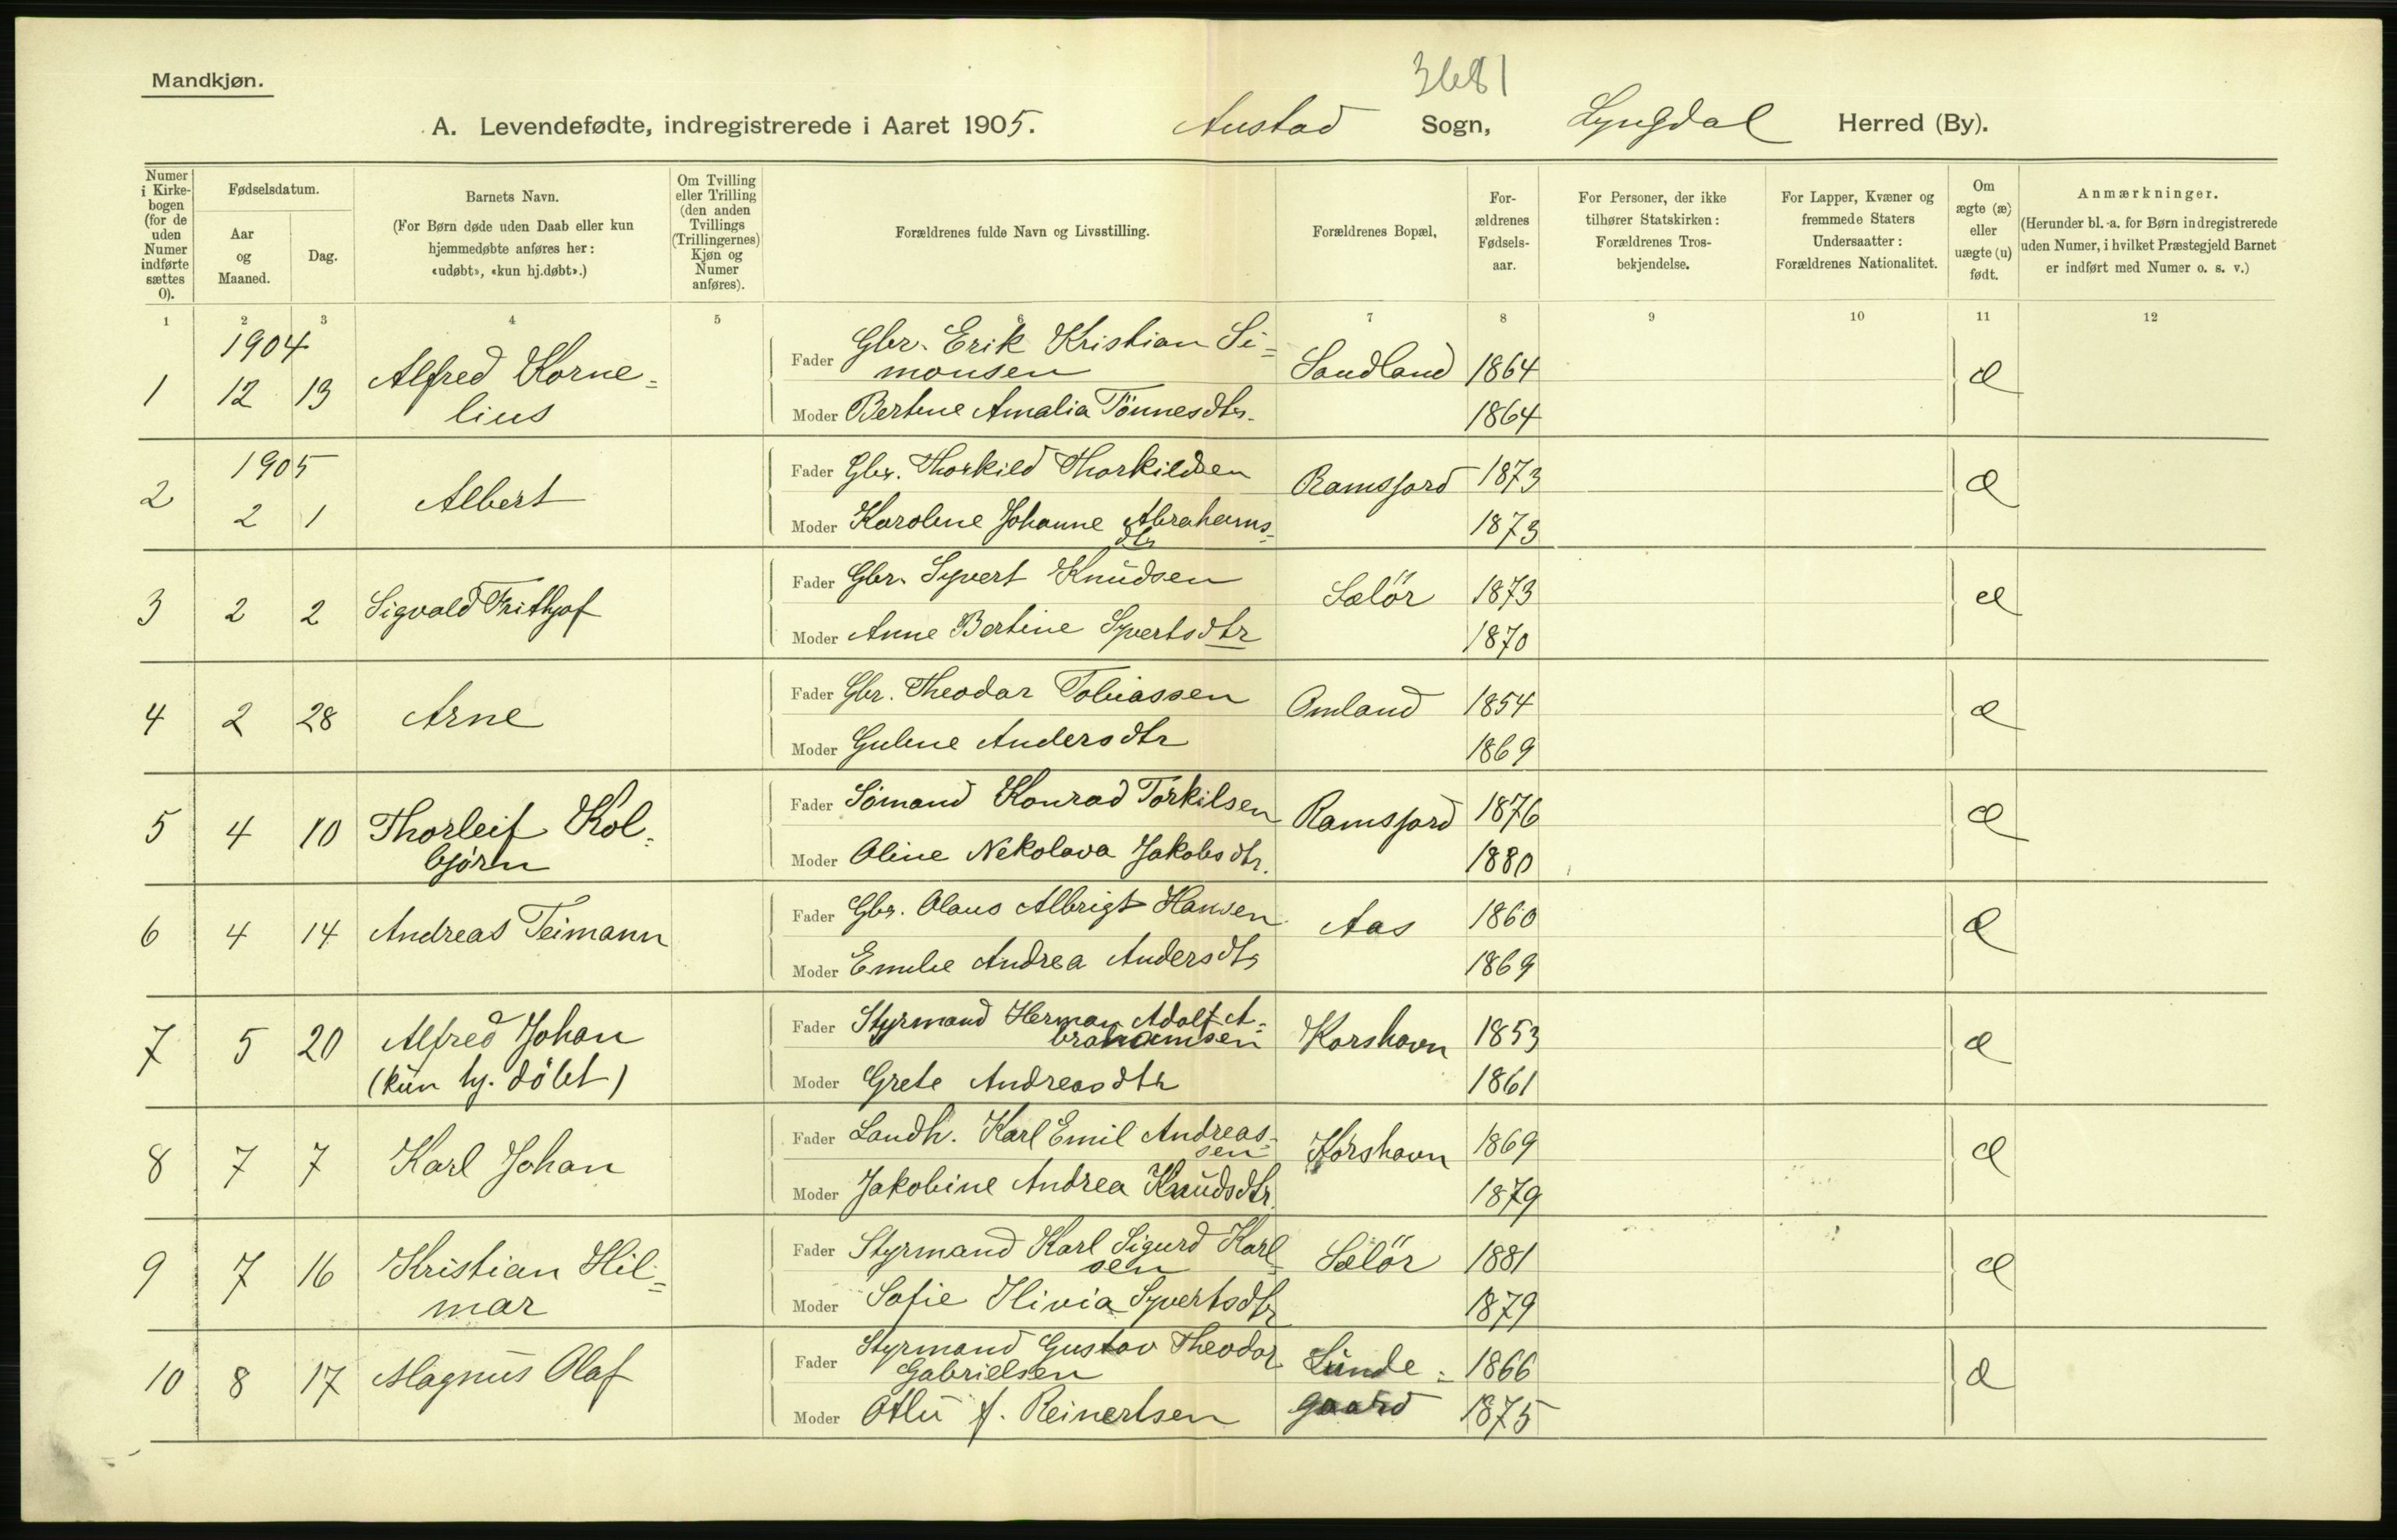 3681
Mandkjøn.
A. Levendefødte, indregistrerede i Aaret 1905. Austad Sogn, Lyngdal Herred (By).
Numer i Kirkebogen (for de uden Numer indførte sættes 0).
Fødselsdatum.
Aar og Maaned.
Dag.
Barnets Navn.
(For Børn døde uden Daab eller kun hjemmedøbte anføres her: «udøbt», «kun hj.døbt».)
Om Tvilling eller Trilling (den anden Tvillings (Trillingernes) Kjøn og Numer anføres).
Forældrenes fulde Navn og Livsstilling.
Forældrenes Bopæl,
For-ældrenes Fødsels-aar.
For Personer, der ikke tilhører Statskirken: Forældrenes Tros-bekjendelse.
For Lapper, Kvæner og fremmede Staters Undersaatter: Forældrenes Nationalitet.
Om ægte (æ) eller uægte (u) født.
Anmærkninger.
(Herunder bl. a. for Børn indregistrerede uden Numer, i hvilket Præstegjeld Barnet er indført med Numer o. s. v.)
1 2 3 4 5 6 7 8 9 10 11 12
1904
1 12 13 Alfred Korne-
lius
Fader Gbr. Erik Kristian Si-
monsen Sandland 1864 æ
Moder Bertine Amalia Tönnesdtr. 1864
1905
2 2 1 Albert
Fader Gbr. Thorkild Thorkildsen Ramsfjord 1873 æ
Moder Karoline Johanne Abrahams-
dtr 1873
3 2 2 Sigvald Frithjof
Fader Gbr. Syvert Knudsen Sælör 1873 æ
Moder Anne Bertine Syvertsdtr 1870
4 2 28 Arne
Fader Gbr. Theodor Tobiassen Omland 1854 æ
Moder Guline Andersdtr 1869
5 4 10 Thorleif Kol-
bjørn
Fader Sömand Konrad Torkilsen Ramsfjord 1876 æ
Moder Oline Nekolava Jakobsdtr. 1880
6 4 14 Andreas Teimann
Fader Gbr. Olaus Albrigt Hansen Aas 1860 æ
Moder Emilie Andrea Andersdtr 1869
7 5 20 Alfred Johan
(kun hj. döbt)
Fader Styrmand Herman Adolf A-
brahamsen Korshavn 1853 æ
Moder Grete Andreasdtr 1861
8 7 7 Karl Johan
Fader Landh. Karl Emil Andreas-
sen Korshavn 1869 æ
Moder Jakobine Andrea Knudsdtr. 1879
9 7 16 Kristian Hil-
mar
Fader Styrmand Karl Sigurd Karl-
sen Sælör 1881 æ
Moder Sofie Hlivia Syvertsdtr 1879
10 8 17 Magnus Olaf
Fader Styrmand Gustav Theodor
Gabrielsen Lunde- 1866 æ
Moder f. Reinertsen gaard 1875